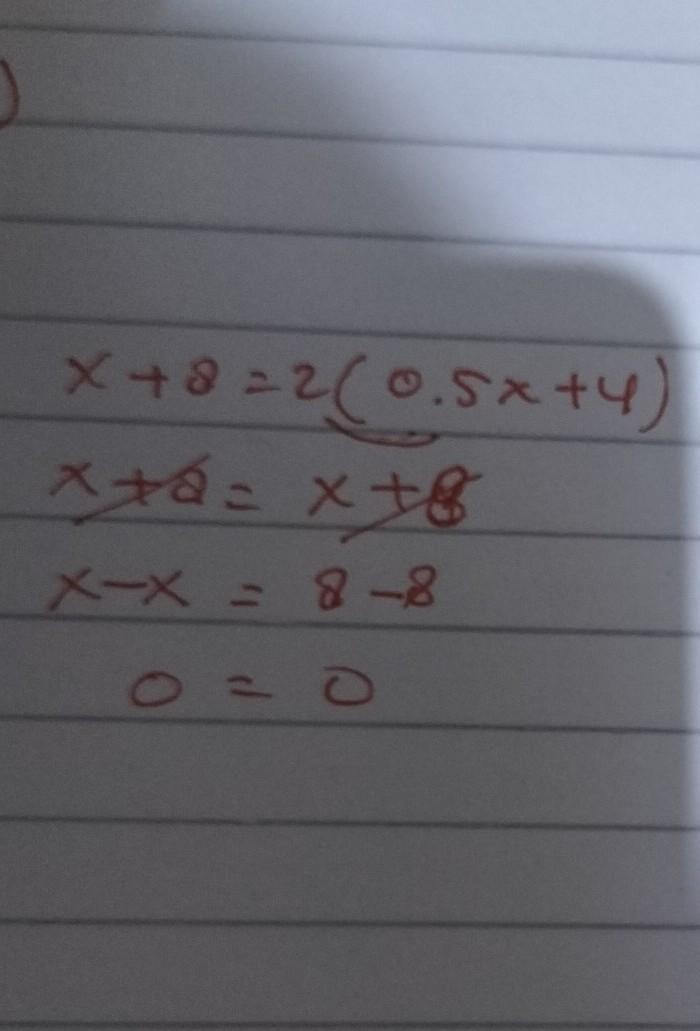 )
x + 8 = 2(0.5x + 4)
x + 8 = x + 8
x - x = 8 - 8
0 = 0